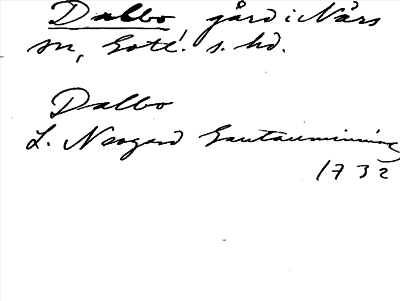 Dalbo gård i Närs
sn, Gotl. s. hd.
Dalbo
L. Neogard Gautauminning
1732